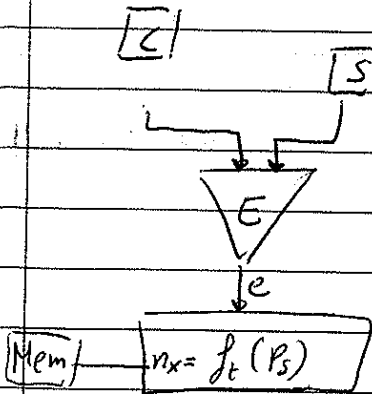 C
S
E
e
Mem n_x = f_t (P_s)